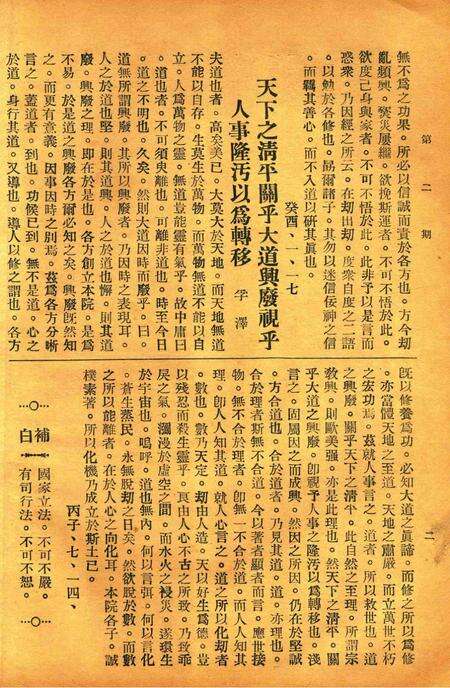 第二期
無不爲之功果。所必以信誠而責於各方也。方今刧
亂頻興。燹災屢纒。欲挽斯運者。不可不悟於此。
欲度己身與家者。不可不悟於此。此非予以是言而
惑衆。乃因經之所云。在刧出刧。度衆自度之二語
。以勉於各修也。勗爾諸子。其勿以迷信佞神之信
。而羈其善心。而不入道以研其眞也。
癸酉、一、一七
天下之淸平關乎大道興廢視乎
人事隆汚以爲轉移
孚澤
夫道也者。高矣美已。大莫大於天地。而天地無道
不能以自存。生莫生於萬物。而萬物無道不能以自
立。人爲萬物之靈。無道豈能靈有氣乎。故中庸曰
。道也者。不可須臾離也。可離非道也。時至今日
。道之不明也。久矣。然則大道因時而廢乎。曰。
道無所謂興廢。其所以興廢者。乃因時之表現耳。
人之於道也堅。則其道興。人之於道也懈。則其道
廢。興廢之理。即在於是也。各方創立本院。是爲
不易。於是道之興廢各方爾必知之矣。興廢旣然知
之。而更有意義。因事因時之別焉。茲爲各方分晰
言之。蓋道者。到也。功候已到。無不是道。心之
於道。身行其道。又導也。導人以修之謂也。各方
旣以修養爲功。必知大道之眞諦。而修之所以爲修
。亦當體天地之至道。天地之肅嚴。而立萬世不朽
之宏功焉。茲就人事言之。道者。所以救世也。道
之興廢。關乎天下之淸平。此自然之至理。所謂宗
敎興。則歐美强。亦是此理也。然天下之淸平。關
乎大道之興廢。卽視乎人事之隆汚以爲轉移也。淺
言之。固屬因之而成興。然因之所因。仍在於堅誠
。方合道也。合於道者。乃見其道。道。亦理也。
合於理者斯無不合道。今以著者顯者而言。應世接
物。無不合於理者。卽無一不合於道。而人人知其
理。卽人人知其道。就人心言之。道之所以化刧者
。數也。數乃天定。刧由人造。天以好生爲德。豈
以殘忍而殺生靈乎。良由人心不古之所致。乃致乖
戾之氣。瀰漫於虛空之間。而水火之祲災。遂環生
於宇宙也。嗚呼。道也無內。何以言弭。何以言化
。蒼生蒸民。永無脫刧之日矣。然欲脫於數。而數
之所以能離者。在於人心之向化耳。本院各子。誠
樸素著。所以化機乃成立於斯土已。
丙子、七、一四、
補白
國家立法。不可不嚴。
有司行法。不可不恕。
二